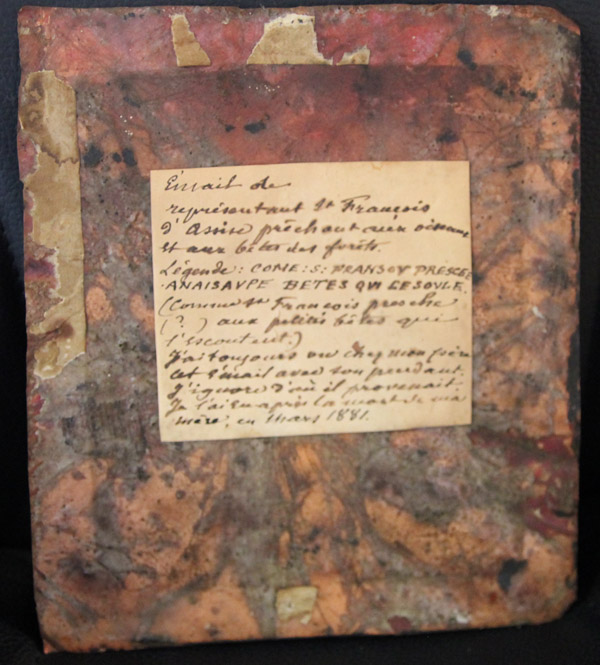 Émail de
représentant St François
d'Assise prêchant aux oiseaux
et aux bêtes des forêts.
Légende: COME: S: FRANSOY PRESCEE
ANAISAVPE BETES QVI LESOVLE.
(Comme St François presche
(?) aux petites bêtes qui
l'escoutent.)
J'ai toujours vu chez mon père
cet émail avec son pendant.
J'ignore d'où il provenait.
Je l'ai eu après la mort de ma
mère; en Mars 1881.